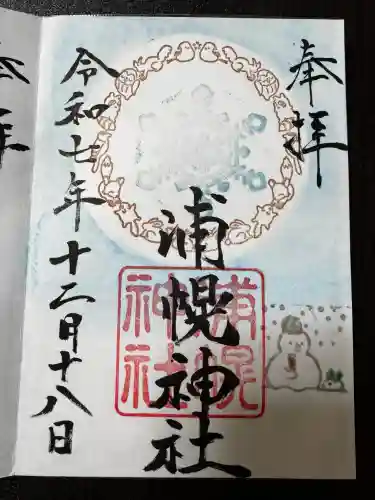 奉拝
浦幌神社
浦幌神社
令和七年十二月十八日